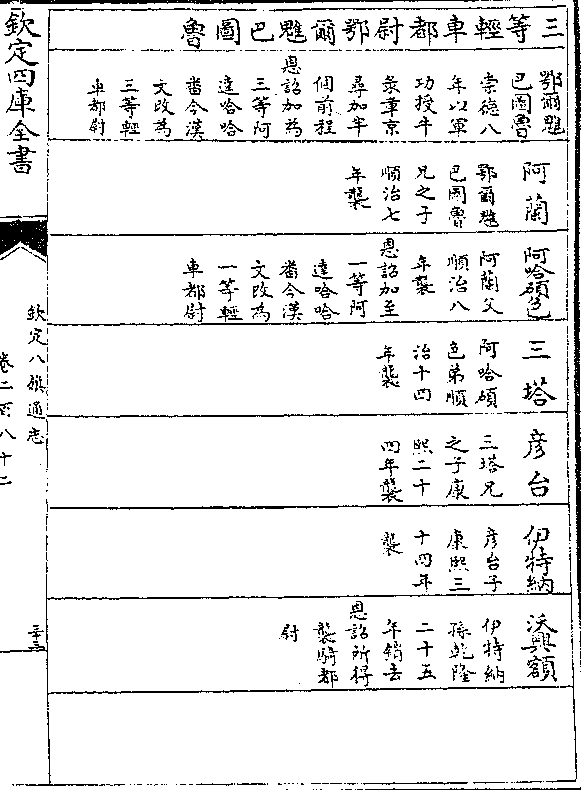 三等輕車都尉鄂爾魋巴圖魯
鄂爾魋
巴圖魯
崇德八
年以軍
功授牛
彔章京
尋加半
個前程
恩詔加為
三等阿
達哈哈
番今漢
文改為
三等輕
車都尉
阿蘭
鄂爾魋
巴圖魯
兄之子
順治七
年襲
阿哈碩色
阿蘭父
順治八
年襲
恩詔加至
一等阿
達哈哈
番今漢
文改為
一等輕
車都尉
三塔
阿哈碩
色弟順
治十四
年襲
彦台
三塔兄
之子康
熙二十
四年襲
伊特納
彦台子
康熙三
十四年
襲
沃興額
伊特納
孫乾隆
二十五
年銷去
恩詔所得
襲騎都
尉
欽定四庫全書
欽定八旗通志
卷二百八十二